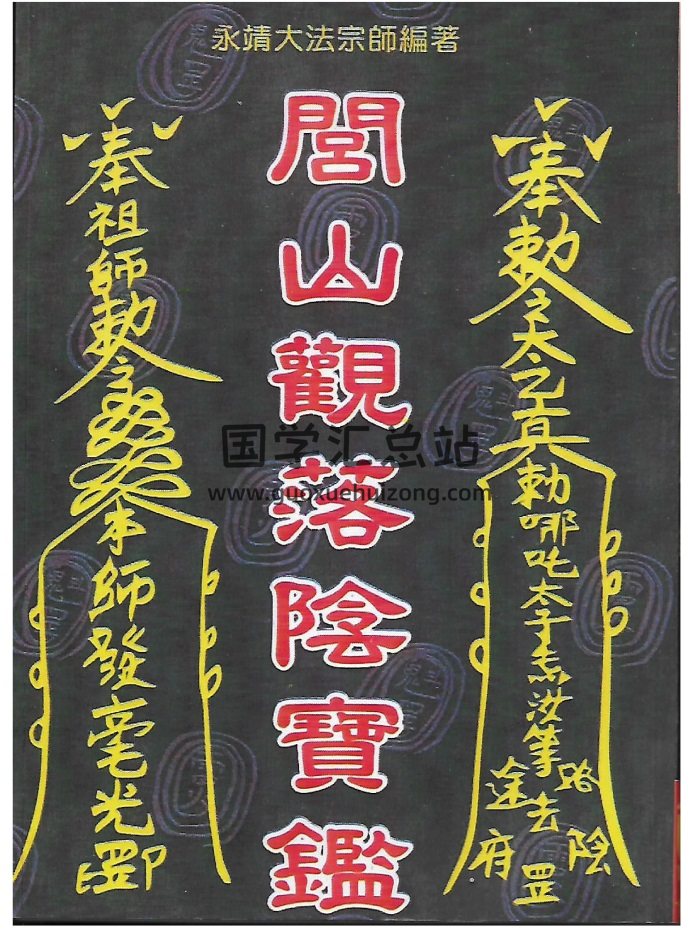 永靖大法宗師編著
奉勅令太乙真勅哪吒太子
路途去陰府罡
閭山觀落陰寶鑑
奉祖師勅令
本師發毫光罡印
国学汇总站
www.guoxuehuizong.com